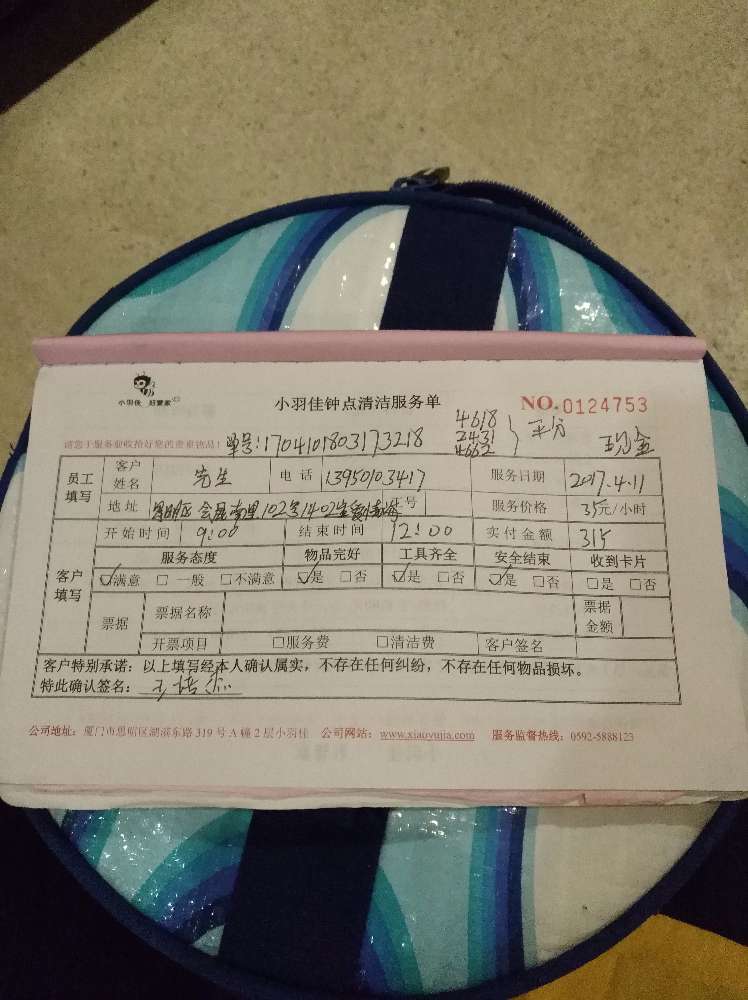 小羽佳 好管家
小羽佳钟点清洁服务单
NO. 0124753
请您于服务前收拾好您的贵重物品!
单号:1704101803173218
4618
2431
4662
平分
现金
员工填写 客户姓名 先生 电话 13950103417 服务日期 2017.4.11
地址 会展南里102号1402 服务价格 35元/小时
客户填写 开始时间 9:00 结束时间 12:00 实付金额 315
服务态度 物品完好 工具齐全 安全结束 收到卡片
☑满意 □一般 □不满意 ☑是 □否 ☑是 □否 ☑是 □否 □是 □否
票据 票据名称 票据金额
开票项目 □服务费 □清洁费 客户签名
客户特别承诺:以上填写经本人确认属实,不存在任何纠纷,不存在任何物品损坏。
特此确认签名:
公司地址:厦门市思明区湖滨东路 319 号 A 幢 2 层小羽佳 公司网站:www.xiaoyujia.com 服务监督热线:0592-5888123